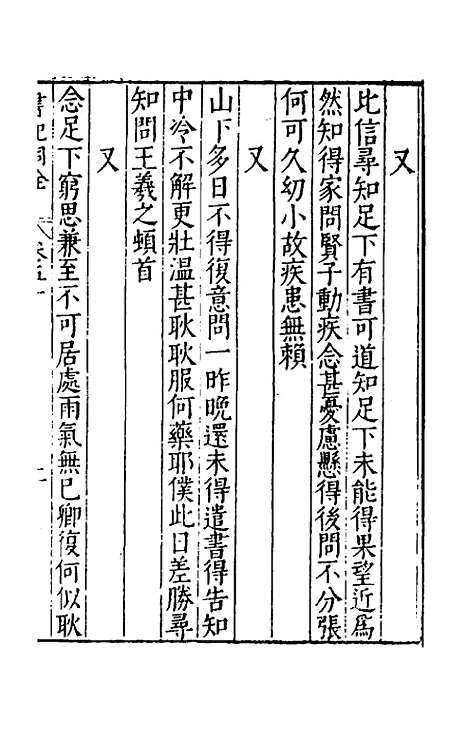 又
比信尋知足下有書可道知足下未能得果望近爲
然知得家問賢子動疾念甚憂慮懸得後問不分張
何可久幼小故疾患無賴
又
山下多日不得復意問一昨晚還未得遣書得告知
中冷不解更壯溫甚耿耿服何藥耶僕此日差勝尋
知問王羲之頓首
又
念足下窮思兼至不可居處雨氣無已卿復何似耿